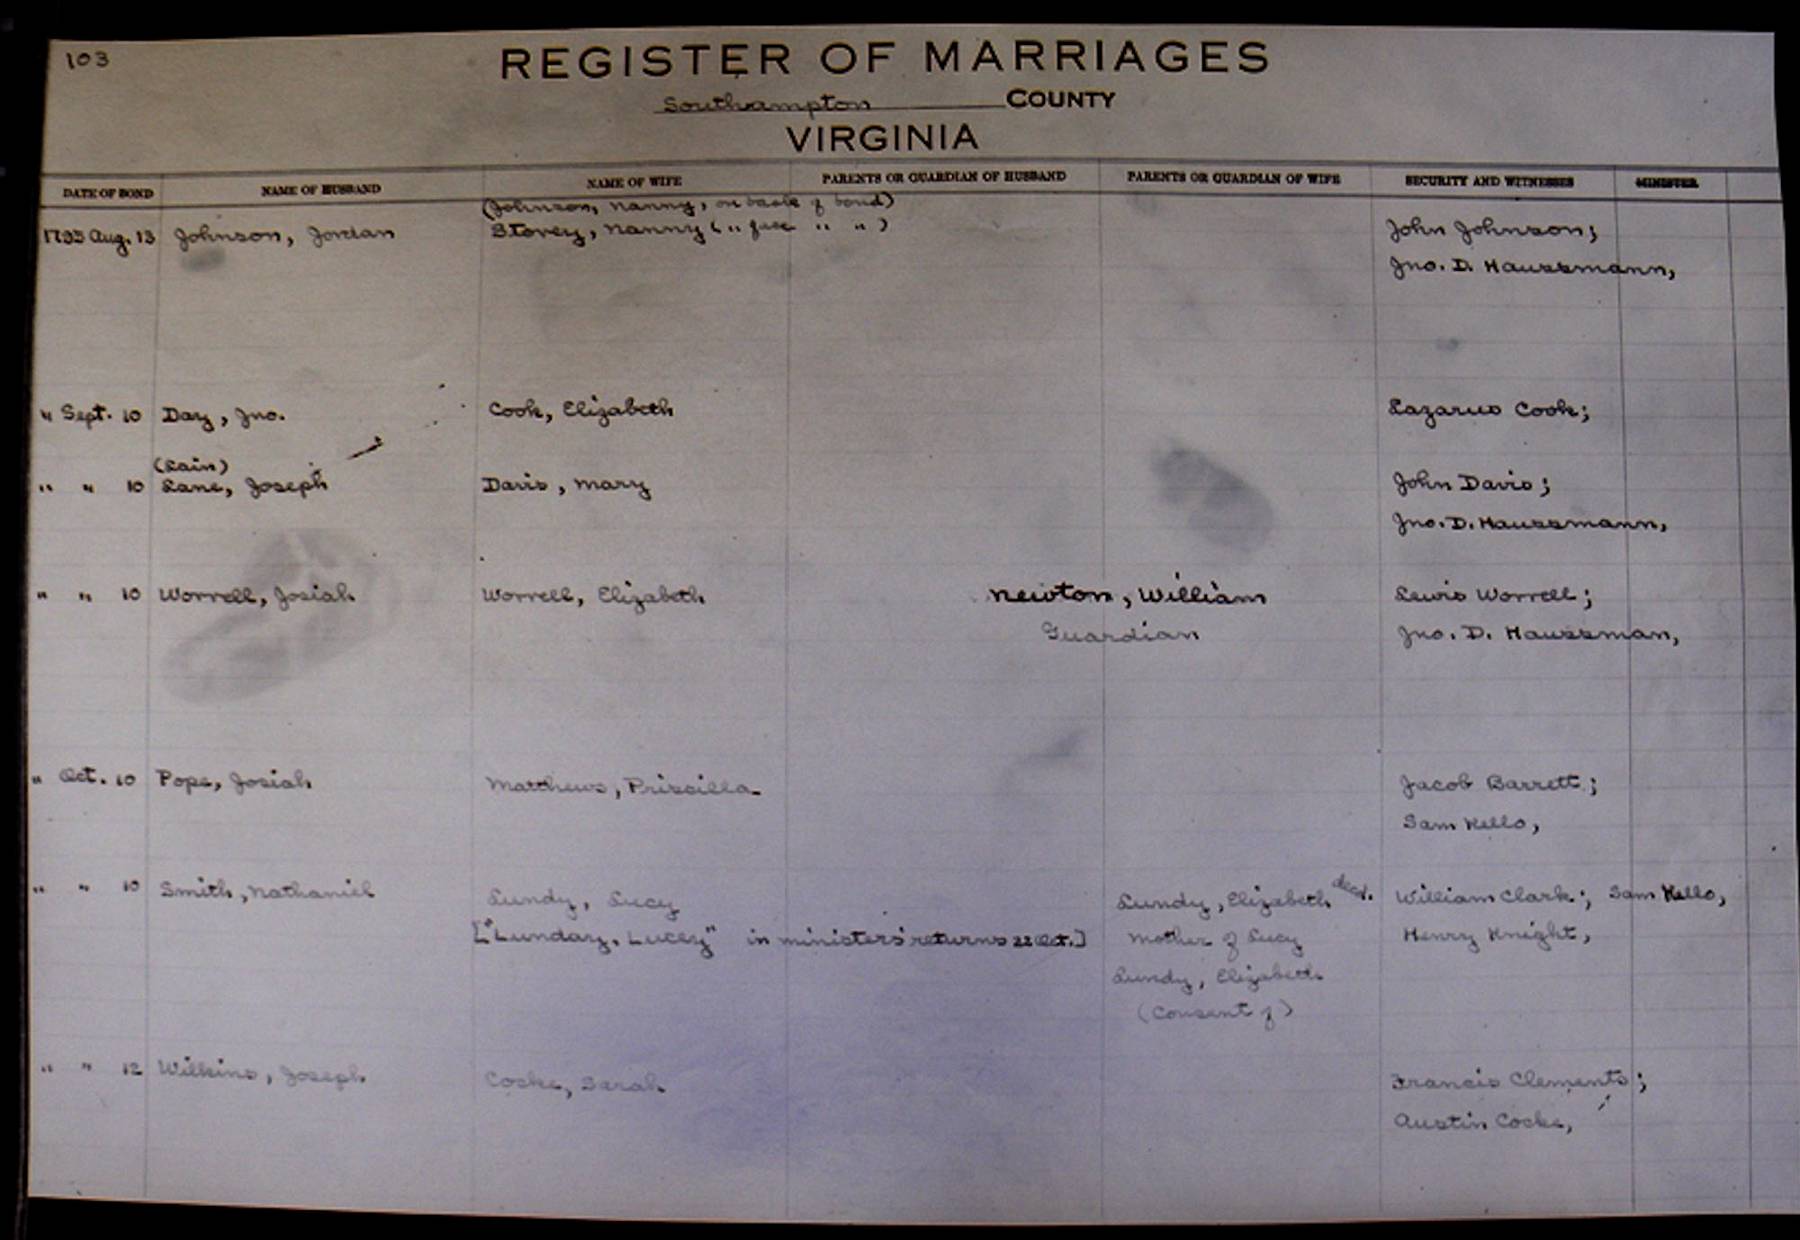 103
REGISTER OF MARRIAGES
Southampton COUNTY
VIRGINIA
DATE OF BOND NAME OF HUSBAND NAME OF WIFE PARENTS OR GUARDIAN OF HUSBAND PARENTS OR GUARDIAN OF WIFE SECURITY AND WITNESSES MINISTER
(Johnson, Nanny, on back of bond)
1793 Aug. 13 Johnson, Jordan Storey, Nanny (" face " ") John Johnson;
Jno. D. Haussmann,
" Sept. 10 Day, Jno. Cook, Elizabeth Lazarus Cook;
(Lain)
" " 10 Lane, Joseph Davis, Mary John Davis;
Jno. D. Haussmann,
" " 10 Worrell, Josiah Worrell, Elizabeth Newton, William Lewis Worrell;
Guardian Jno. D. Haussman,
" Oct. 10 Pope, Josiah Matthews, Priscilla Jacob Barrett;
Sam Kello,
" " 10 Smith, Nathaniel Lundy, Lucy Lundy, Elizabeth decd. William Clark; Sam Kello,
["Lunday, Lucey" in ministers' returns 22 Oct.] mother of Lucy Henry Knight,
Lundy, Elizabeth
(Consent of)
" " 12 Wilkins, Joseph Cocke, Sarah Francis Clements;
Austin Cocke,